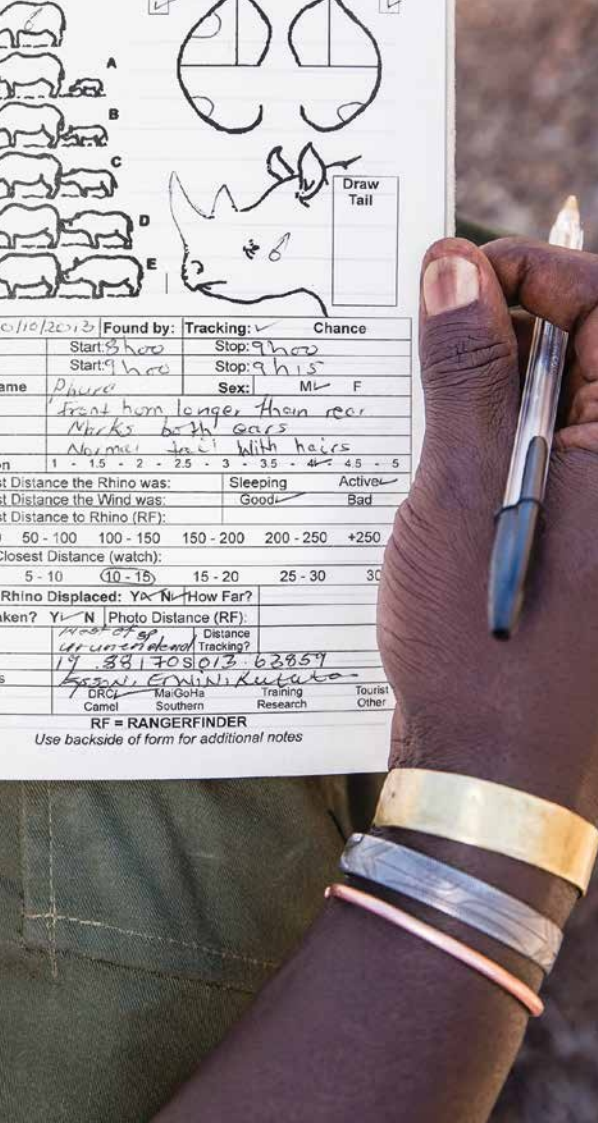 A
B
C
D
E
Draw Tail
0/10/2013 Found by: Tracking: ✓ Chance
Start: 8h00 Stop: 9h00
Start: 9h00 Stop: 9h15
ame Phura Sex: M✓ F
front horn longer than rear
Marks both ears
Normal tail with hairs
n 1 - 1.5 - 2 - 2.5 - 3 - 3.5 - 4✓ - 4.5 - 5
st Distance the Rhino was: Sleeping Active✓
st Distance the Wind was: Good✓ Bad
st Distance to Rhino (RF):
0 50 - 100 100 - 150 150 - 200 200 - 250 +250
Closest Distance (watch):
5 - 10 10 - 15 15 - 20 25 - 30 30
Rhino Displaced: Y N✓ How Far?
aken? Y✓ N Photo Distance (RF):
West of sp Distance
Tracking?
19.88170S|013.62859
s ERWIN, Kututa
DRC✓ MaiGoHa Training Tourist
Camel Southern Research Other
RF = RANGERFINDER
Use backside of form for additional notes